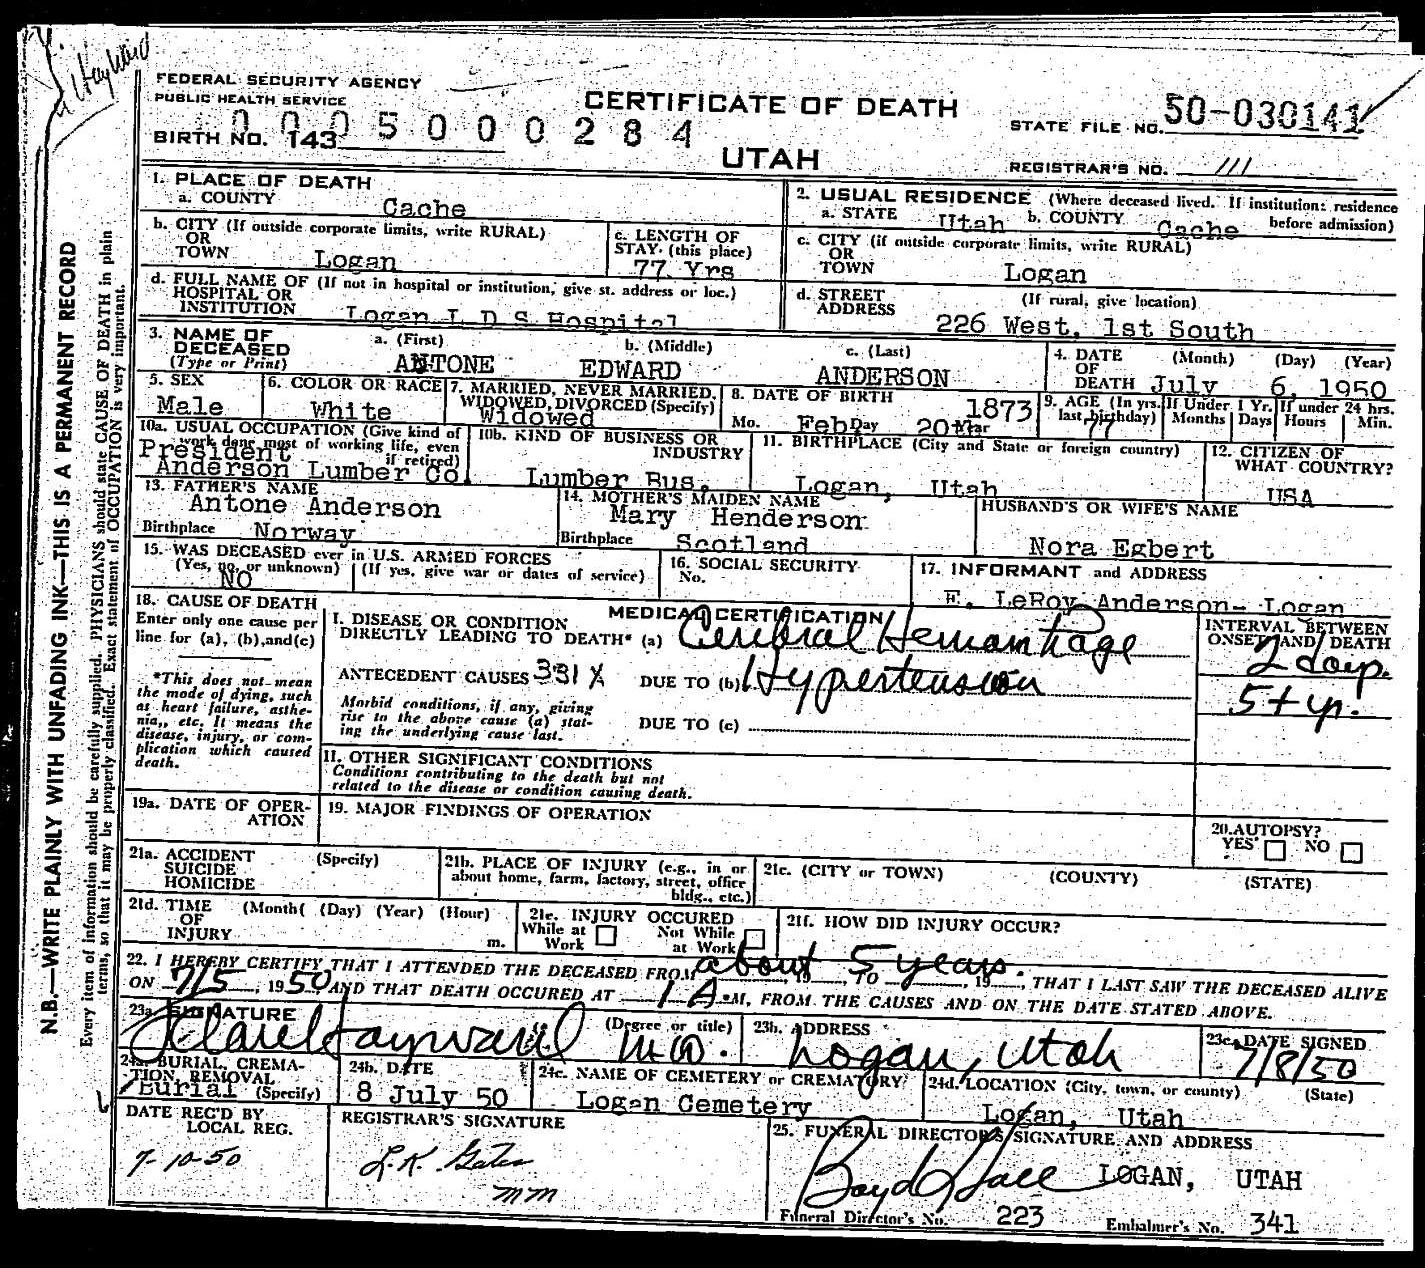 Hayward
FEDERAL SECURITY AGENCY
PUBLIC HEALTH SERVICE
CERTIFICATE OF DEATH
STATE FILE NO. 50-030141
0005000284
BIRTH NO. 143
UTAH
REGISTRAR'S NO. 111
N.B.—WRITE PLAINLY WITH UNFADING INK—THIS IS A PERMANENT RECORD
Every item of information should be carefully supplied. PHYSICIANS should state CAUSE OF DEATH in plain
terms, so that it may be properly classified. Exact statement of OCCUPATION is very important.
1. PLACE OF DEATH
a. COUNTY Cache
2. USUAL RESIDENCE (Where deceased lived. If institution: residence
before admission)
a. STATE Utah b. COUNTY Cache
b. CITY (If outside corporate limits, write RURAL)
OR
TOWN Logan
c. LENGTH OF
STAY. (this place)
77 Yrs
c. CITY (if outside corporate limits, write RURAL)
OR
TOWN Logan
d. FULL NAME OF (If not in hospital or institution, give st. address or loc.)
HOSPITAL OR
INSTITUTION Logan L D S Hospital
d. STREET (If rural, give location)
ADDRESS 226 West, 1st South
3. NAME OF
DECEASED
(Type or Print)
a. (First) ANTONE
b. (Middle) EDWARD
c. (Last) ANDERSON
4. DATE (Month) (Day) (Year)
OF
DEATH July 6, 1950
5. SEX
Male
6. COLOR OR RACE
White
7. MARRIED, NEVER MARRIED,
WIDOWED, DIVORCED (Specify)
Widowed
8. DATE OF BIRTH 1873
Mo. Feb Day 20th Year
9. AGE (In yrs. last birthday) 77
If Under 1 Yr. Months Days
If under 24 hrs. Hours Min.
10a. USUAL OCCUPATION (Give kind of
work done most of working life, even
if retired)
President
Anderson Lumber Co.
10b. KIND OF BUSINESS OR
INDUSTRY
Lumber Bus.
11. BIRTHPLACE (City and State or foreign country)
Logan, Utah
12. CITIZEN OF
WHAT COUNTRY?
USA
13. FATHER'S NAME
Antone Anderson
Birthplace Norway
14. MOTHER'S MAIDEN NAME
Mary Henderson
Birthplace Scotland
HUSBAND'S OR WIFE'S NAME
Nora Egbert
15. WAS DECEASED ever in U.S. ARMED FORCES
(Yes, no, or unknown) (If yes, give war or dates of service)
NO
16. SOCIAL SECURITY
No.
17. INFORMANT and ADDRESS
E. LeRoy Anderson- Logan
18. CAUSE OF DEATH
Enter only one cause per
line for (a), (b), and (c)
*This does not mean
the mode of dying, such
as heart failure, asthe-
nia,, etc. It means the
disease, injury, or com-
plication which caused
death.
MEDICAL CERTIFICATION
I. DISEASE OR CONDITION
DIRECTLY LEADING TO DEATH* (a) Cerebral Hemorrhage
INTERVAL BETWEEN
ONSET AND DEATH
2 days.
ANTECEDENT CAUSES 331 X DUE TO (b) Hypertension
5+ yr.
Morbid conditions, if any, giving
rise to the above cause (a) stat-
ing the underlying cause last.
DUE TO (c)
11. OTHER SIGNIFICANT CONDITIONS
Conditions contributing to the death but not
related to the disease or condition causing death.
19a. DATE OF OPER-
ATION
19. MAJOR FINDINGS OF OPERATION
20. AUTOPSY?
YES NO
21a. ACCIDENT (Specify)
SUICIDE
HOMICIDE
21b. PLACE OF INJURY (e.g., in or
about home, farm, factory, street, office
bldg., etc.)
21c. (CITY or TOWN) (COUNTY) (STATE)
21d. TIME (Month( (Day) (Year) (Hour)
OF
INJURY m.
21e. INJURY OCCURED
While at Work Not While at Work
21f. HOW DID INJURY OCCUR?
22. I HEREBY CERTIFY THAT I ATTENDED THE DECEASED FROM about 5 years. , 19 , TO , 19 , THAT I LAST SAW THE DECEASED ALIVE
ON 7/5, 1950 AND THAT DEATH OCCURED AT 1 A.M, FROM THE CAUSES AND ON THE DATE STATED ABOVE.
23a. SIGNATURE (Degree or title)
Clare Hayward M.D.
23b. ADDRESS
Logan, Utah
23c. DATE SIGNED
7/8/50
24a. BURIAL, CREMA-
TION, REMOVAL
Burial (Specify)
24b. DATE
8 July 50
24c. NAME OF CEMETERY or CREMATORY?
Logan Cemetery
24d. LOCATION (City, town, or county) (State)
Logan, Utah
DATE REC'D BY
LOCAL REG.
7-10-50
REGISTRAR'S SIGNATURE
L.K. Gates
mm
25. FUNERAL DIRECTOR'S SIGNATURE AND ADDRESS
Boyd Hall LOGAN, UTAH
Funeral Director's No. 223 Embalmer's No. 341